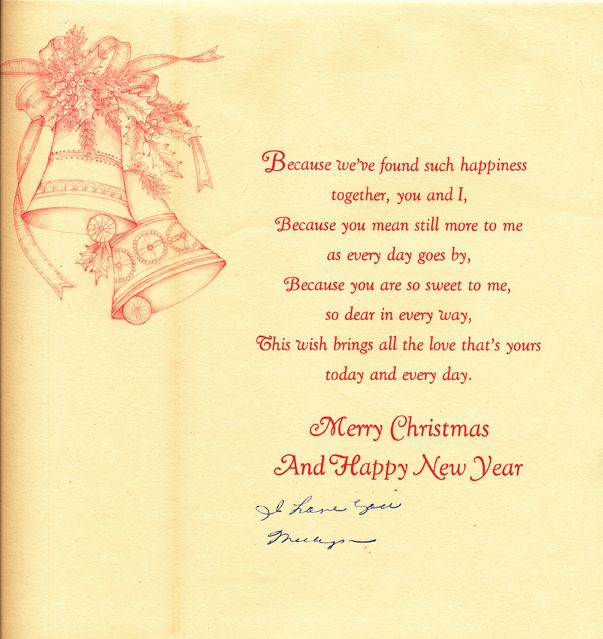 Because we've found such happiness
together, you and I,
Because you mean still more to me
as every day goes by,
Because you are so sweet to me,
so dear in every way,
This wish brings all the love that's yours
today and every day.
Merry Christmas
And Happy New Year
I Love You